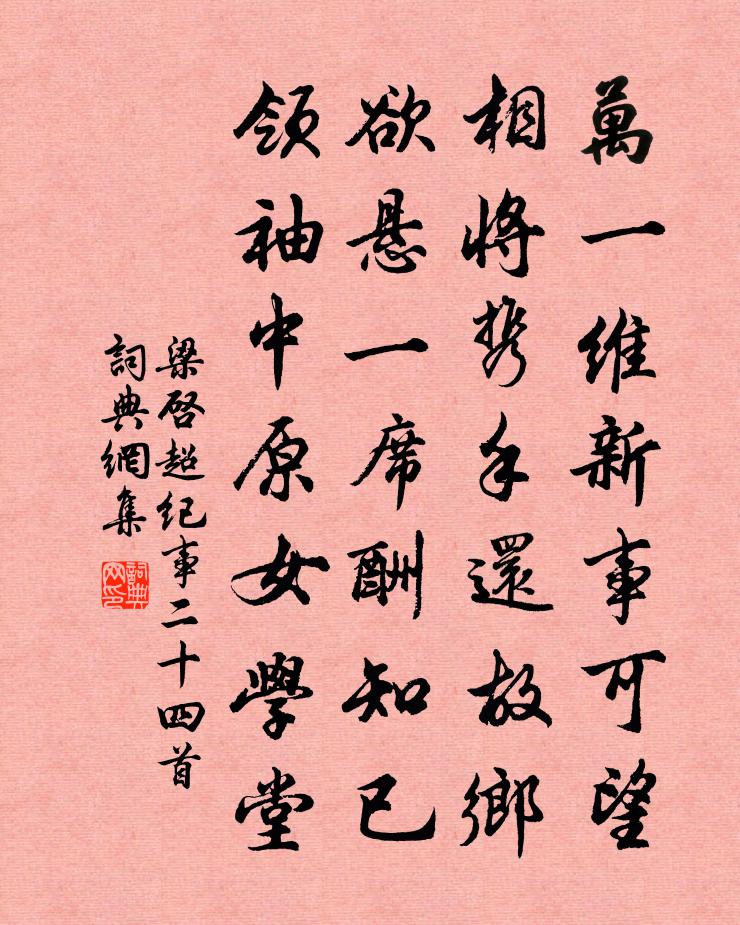 萬一維新事可望
相將携手還故鄉
欲懸一席酬知己
領袖中原女學堂
梁啓超紀事二十四首
詞典網集
詞典网印